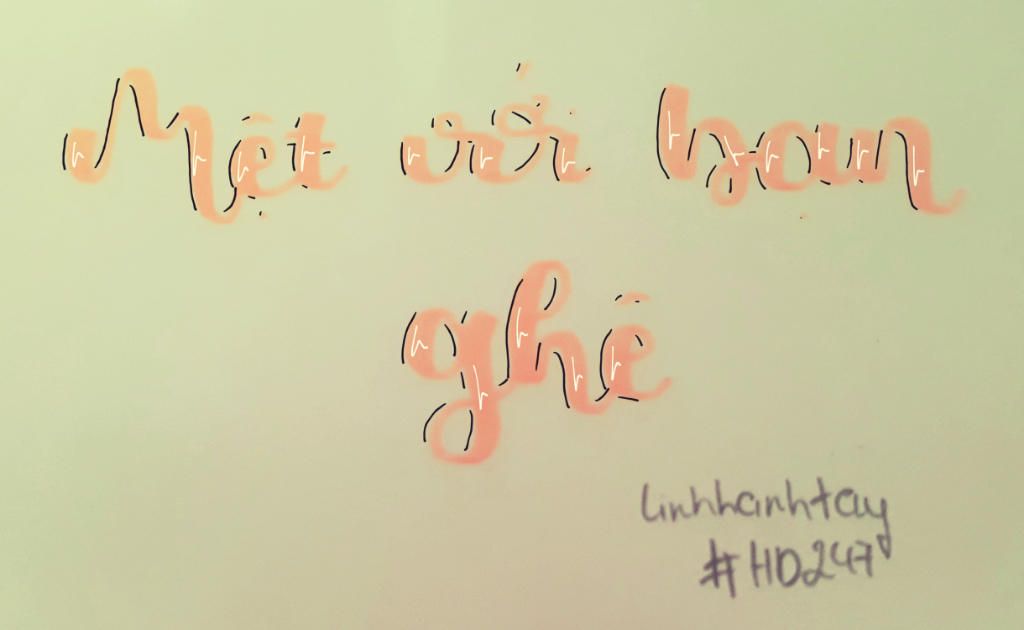 Mệt với bạn
ghê
Linhhanhtay
#HD247